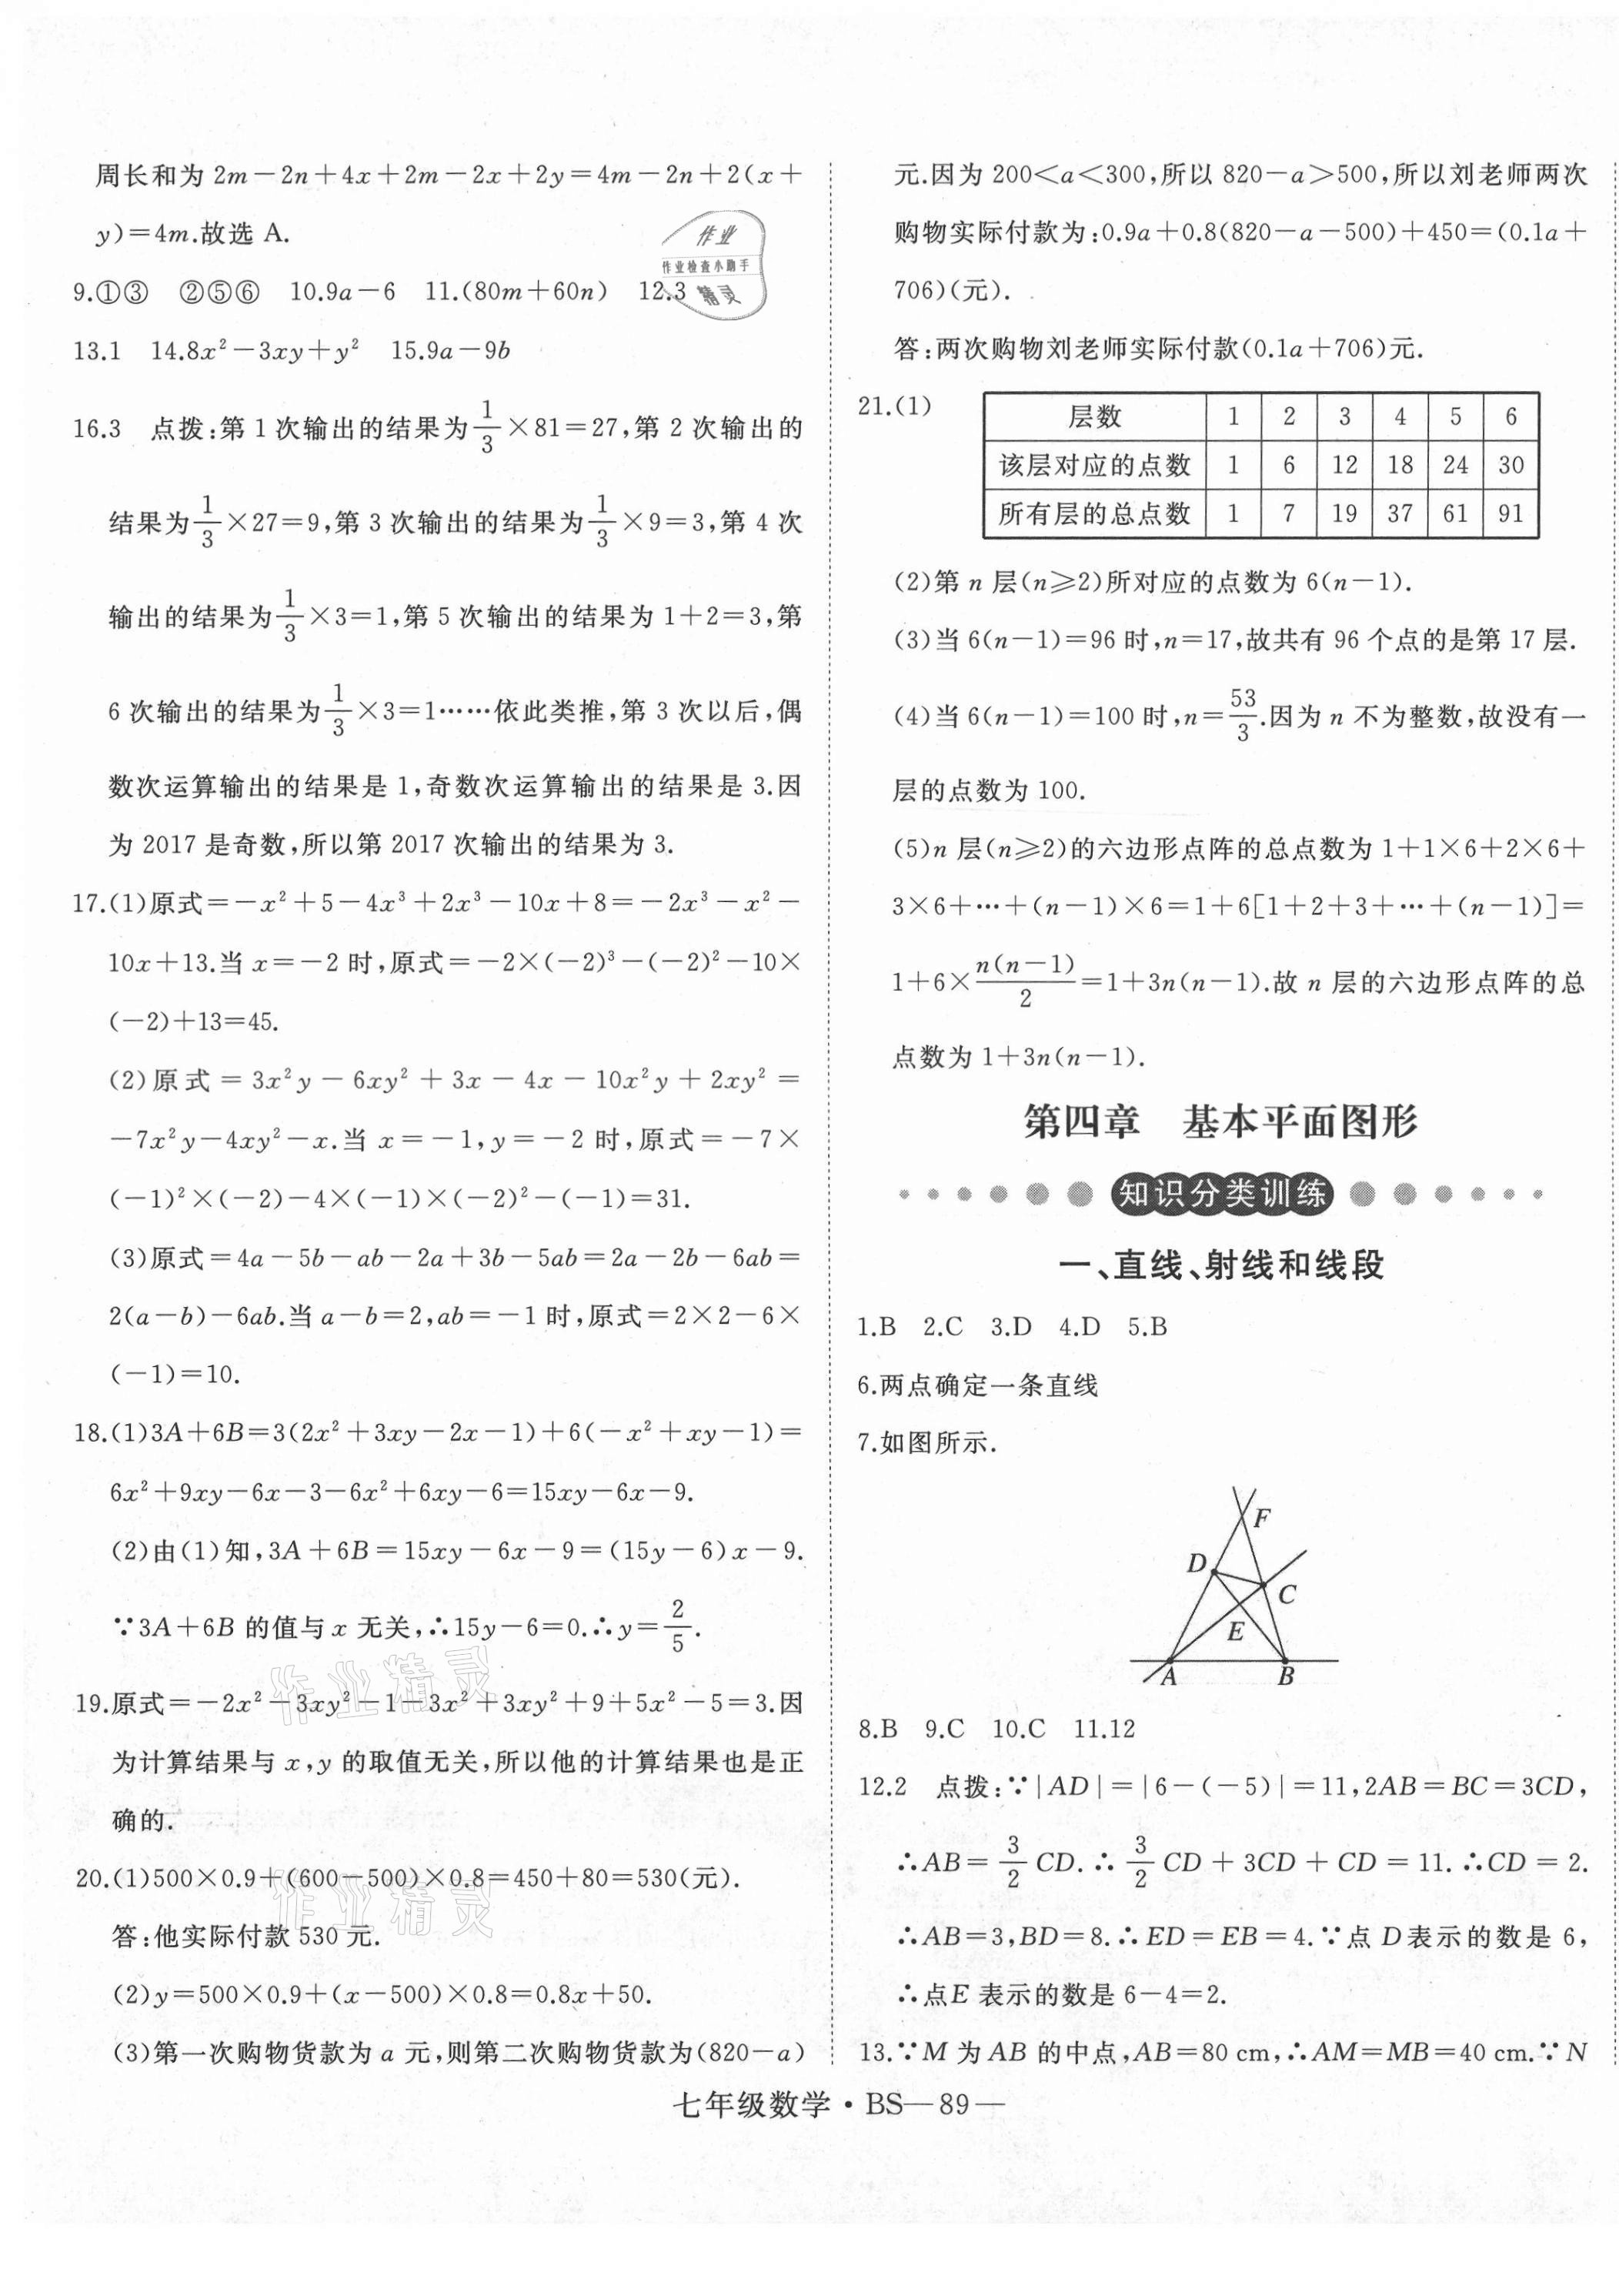 周长和为 2m－2n＋4x＋2m－2x＋2y＝4m－2n＋2(x＋
y)＝4m.故选 A.
9.①③　②⑤⑥　10.9a－6　11.(80m＋60n)　12.3
13.1　14.8x²－3xy＋y²　15.9a－9b
16.3　点拨:第 1 次输出的结果为 1/3 ×81＝27,第 2 次输出的
结果为 1/3 ×27＝9,第 3 次输出的结果为 1/3 ×9＝3,第 4 次
输出的结果为 1/3 ×3＝1,第 5 次输出的结果为 1＋2＝3,第
6 次输出的结果为 1/3 ×3＝1……依此类推,第 3 次以后,偶
数次运算输出的结果是 1,奇数次运算输出的结果是 3.因
为 2017 是奇数,所以第 2017 次输出的结果为 3.
17.(1)原式＝－x²＋5－4x³＋2x³－10x＋8＝－2x³－x²－
10x＋13.当 x＝－2 时,原式＝－2×(－2)³－(－2)²－10×
(－2)＋13＝45.
(2)原式＝3x²y－6xy²＋3x－4x－10x²y＋2xy²＝
－7x²y－4xy²－x.当 x＝－1,y＝－2 时,原式＝－7×
(－1)²×(－2)－4×(－1)×(－2)²－(－1)＝31.
(3)原式＝4a－5b－ab－2a＋3b－5ab＝2a－2b－6ab＝
2(a－b)－6ab.当 a－b＝2,ab＝－1 时,原式＝2×2－6×
(－1)＝10.
18.(1)3A＋6B＝3(2x²＋3xy－2x－1)＋6(－x²＋xy－1)＝
6x²＋9xy－6x－3－6x²＋6xy－6＝15xy－6x－9.
(2)由(1)知,3A＋6B＝15xy－6x－9＝(15y－6)x－9.
∵3A＋6B 的值与 x 无关,∴15y－6＝0.∴y＝2/5.
19.原式＝－2x²－3xy²－1－3x²＋3xy²＋9＋5x²－5＝3.因
为计算结果与 x,y 的取值无关,所以他的计算结果也是正
确的.
20.(1)500×0.9＋(600－500)×0.8＝450＋80＝530(元).
答:他实际付款 530 元.
(2)y＝500×0.9＋(x－500)×0.8＝0.8x＋50.
(3)第一次购物货款为 a 元,则第二次购物货款为(820－a)
作业
作业检查小助手
精灵
作业精灵
作业精灵
元.因为 200＜a＜300,所以 820－a＞500,所以刘老师两次
购物实际付款为:0.9a＋0.8(820－a－500)＋450＝(0.1a＋
706)(元).
答:两次购物刘老师实际付款(0.1a＋706)元.
21.(1)
层数 1 2 3 4 5 6
该层对应的点数 1 6 12 18 24 30
所有层的总点数 1 7 19 37 61 91
(2)第 n 层(n⩾2)所对应的点数为 6(n－1).
(3)当 6(n－1)＝96 时,n＝17,故共有 96 个点的是第 17 层.
(4)当 6(n－1)＝100 时,n＝53/3.因为 n 不为整数,故没有一
层的点数为 100.
(5)n 层(n⩾2)的六边形点阵的总点数为 1＋1×6＋2×6＋
3×6＋…＋(n－1)×6＝1＋6[1＋2＋3＋…＋(n－1)]＝
1＋6×n(n－1)/2＝1＋3n(n－1).故 n 层的六边形点阵的总
点数为 1＋3n(n－1).
第四章　基本平面图形
知识分类训练
一、直线、射线和线段
1.B　2.C　3.D　4.D　5.B
6.两点确定一条直线
7.如图所示.
F
D
C
E
A B
8.B　9.C　10.C　11.12
12.2　点拨:∵|AD|＝|6－(－5)|＝11,2AB＝BC＝3CD,
∴AB＝3/2 CD.∴3/2 CD＋3CD＋CD＝11.∴CD＝2.
∴AB＝3,BD＝8.∴ED＝EB＝4.∵点 D表示的数是 6,
∴点E 表示的数是 6－4＝2.
13.∵M 为 AB 的中点,AB＝80 cm,∴AM＝MB＝40 cm.∵N
七年级数学·BS—89—